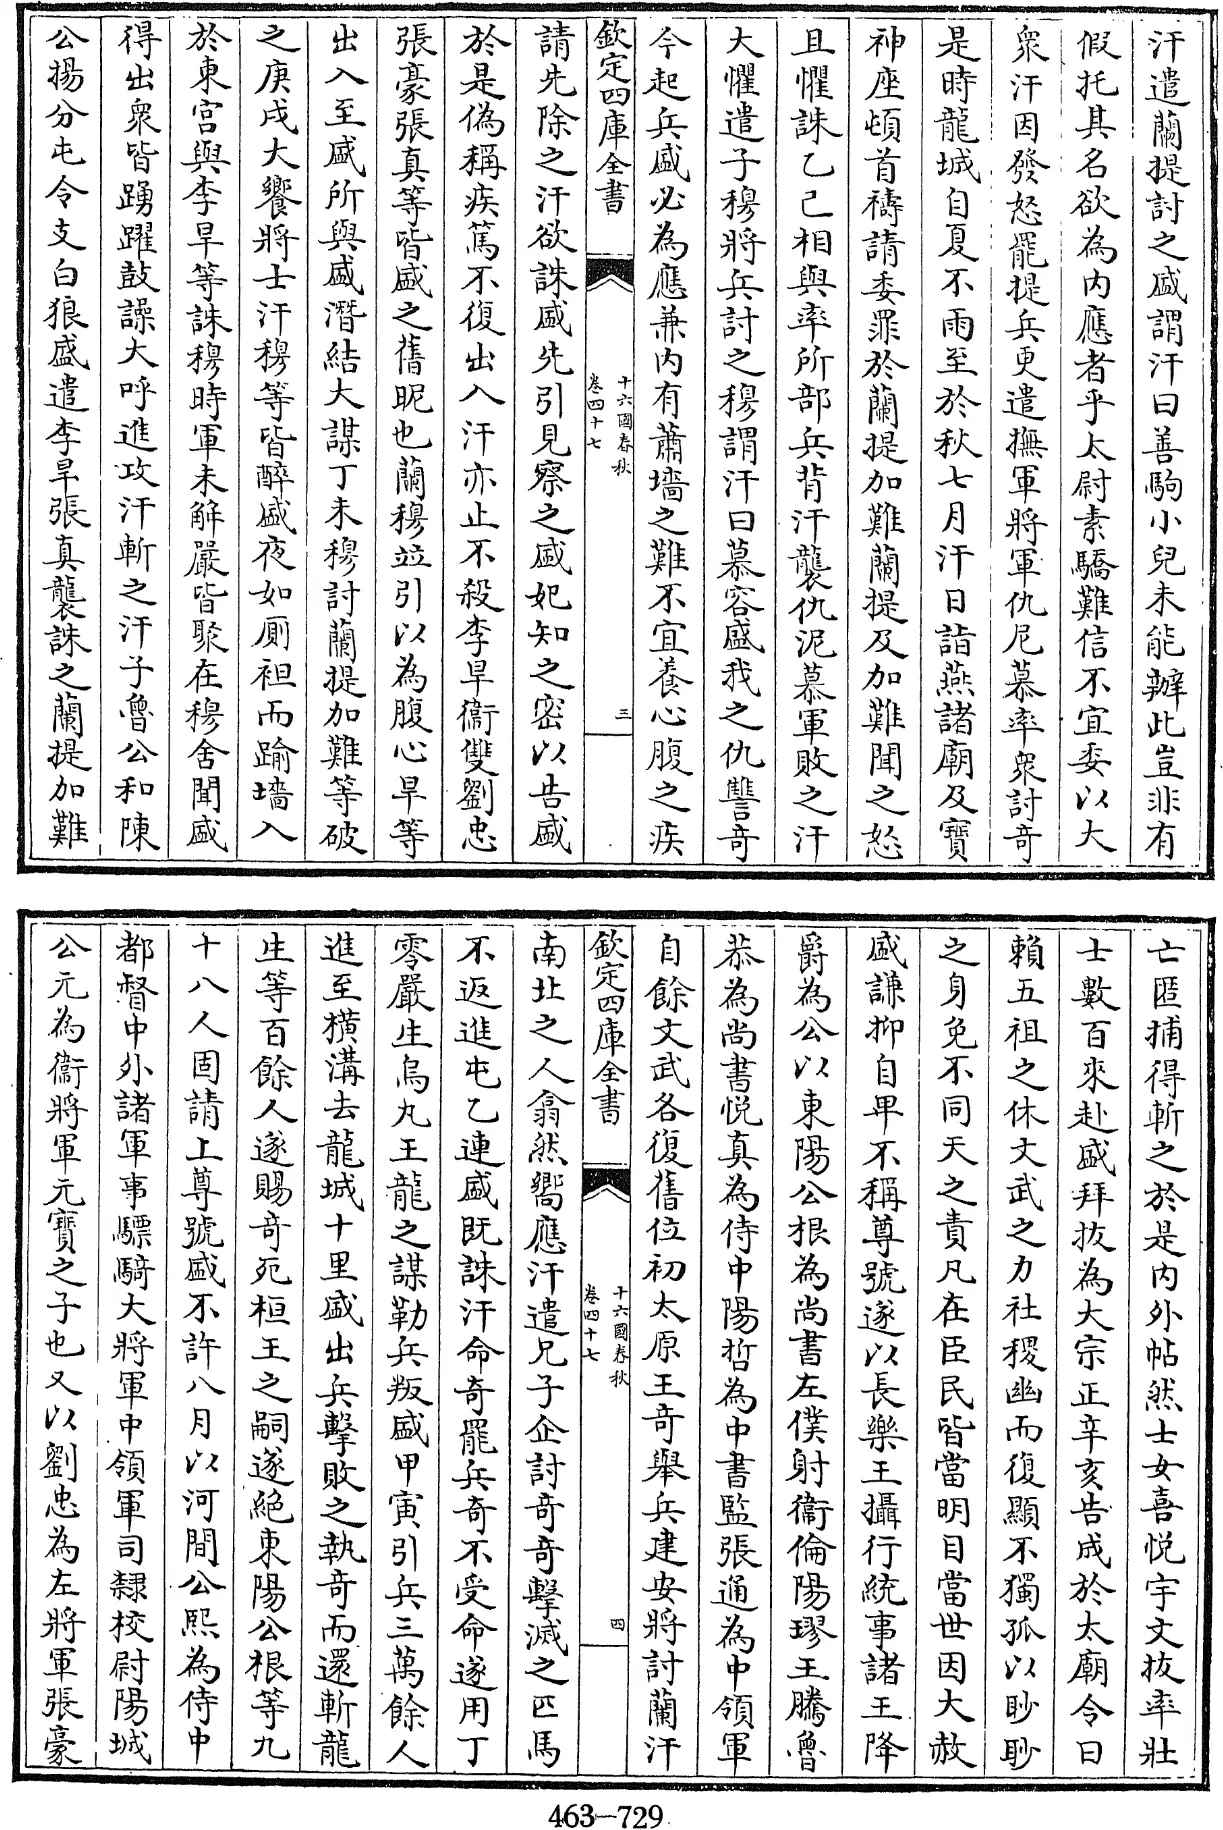 汗遣蘭提討之盛謂汗曰善駒小兒未能辦此豈非有
假托其名欲為内應者乎太尉素驕難信不宜委以大
衆汗因發怒罷提兵更遣撫軍將軍仇尼慕率衆討竒
是時龍城自夏不雨至於秋七月汗日詣燕諸廟及寶
神座頓首禱請委罪於蘭提加難蘭提及加難聞之怒
且懼誅乙已相與率所部兵背汗襲仇泥慕軍敗之汗
大懼遣子穆將兵討之穆謂汗曰慕容盛我之仇讐竒
今起兵盛必為應兼内有蕭墻之難不宜養心腹之疾
欽定四庫全書
十六國春秋
卷四十七
三
請先除之汗欲誅盛先引見察之盛妃知之密以告盛
於是偽稱疾篤不復出入汗亦止不殺李旱衞雙劉忠
張豪張真等皆盛之舊昵也蘭穆竝引以為腹心旱等
出入至盛所與盛潛結大謀丁未穆討蘭提加難等破
之庚戌大饗將士汗穆等皆醉盛夜如厠袒而踰墻入
於東宮與李旱等誅穆時軍未解嚴皆聚在穆舍聞盛
得出衆皆踴躍鼓譟大呼進攻汗斬之汗子魯公和陳
公揚分屯令支白狼盛遣李旱張真襲誅之蘭提加難
亡匿捕得斬之於是内外帖然士女喜悦宇文拔率壯
士數百來赴盛拜拔為大宗正辛亥告成於太廟令曰
賴五祖之休文武之力社稷幽而復顯不獨孤以眇眇
之身免不同天之責凡在臣民皆當明目當世因大赦
盛謙抑自卑不稱尊號遂以長樂王攝行統事諸王降
爵為公以東陽公根為尚書左僕射衞倫陽璆王騰魯
恭為尚書悦真為侍中陽哲為中書監張通為中領軍
自餘文武各復舊位初太原王竒舉兵建安將討蘭汗
欽定四庫全書
十六國春秋
卷四十七
四
南北之人翕然嚮應汗遣兄子企討竒竒擊滅之匹馬
不返進屯乙連盛既誅汗命竒罷兵竒不受命遂用丁
零嚴生烏丸王龍之謀勒兵叛盛甲寅引兵三萬餘人
進至横溝去龍城十里盛出兵擊敗之執竒而還斬龍
生等百餘人遂賜竒死桓王之嗣遂絶東陽公根等九
十八人固請上尊號盛不許八月以河間公熙為侍中
都督中外諸軍事驃騎大將軍中領軍司隸校尉陽城
公元為衞將軍元寶之子也又以劉忠為左將軍張豪
463-729